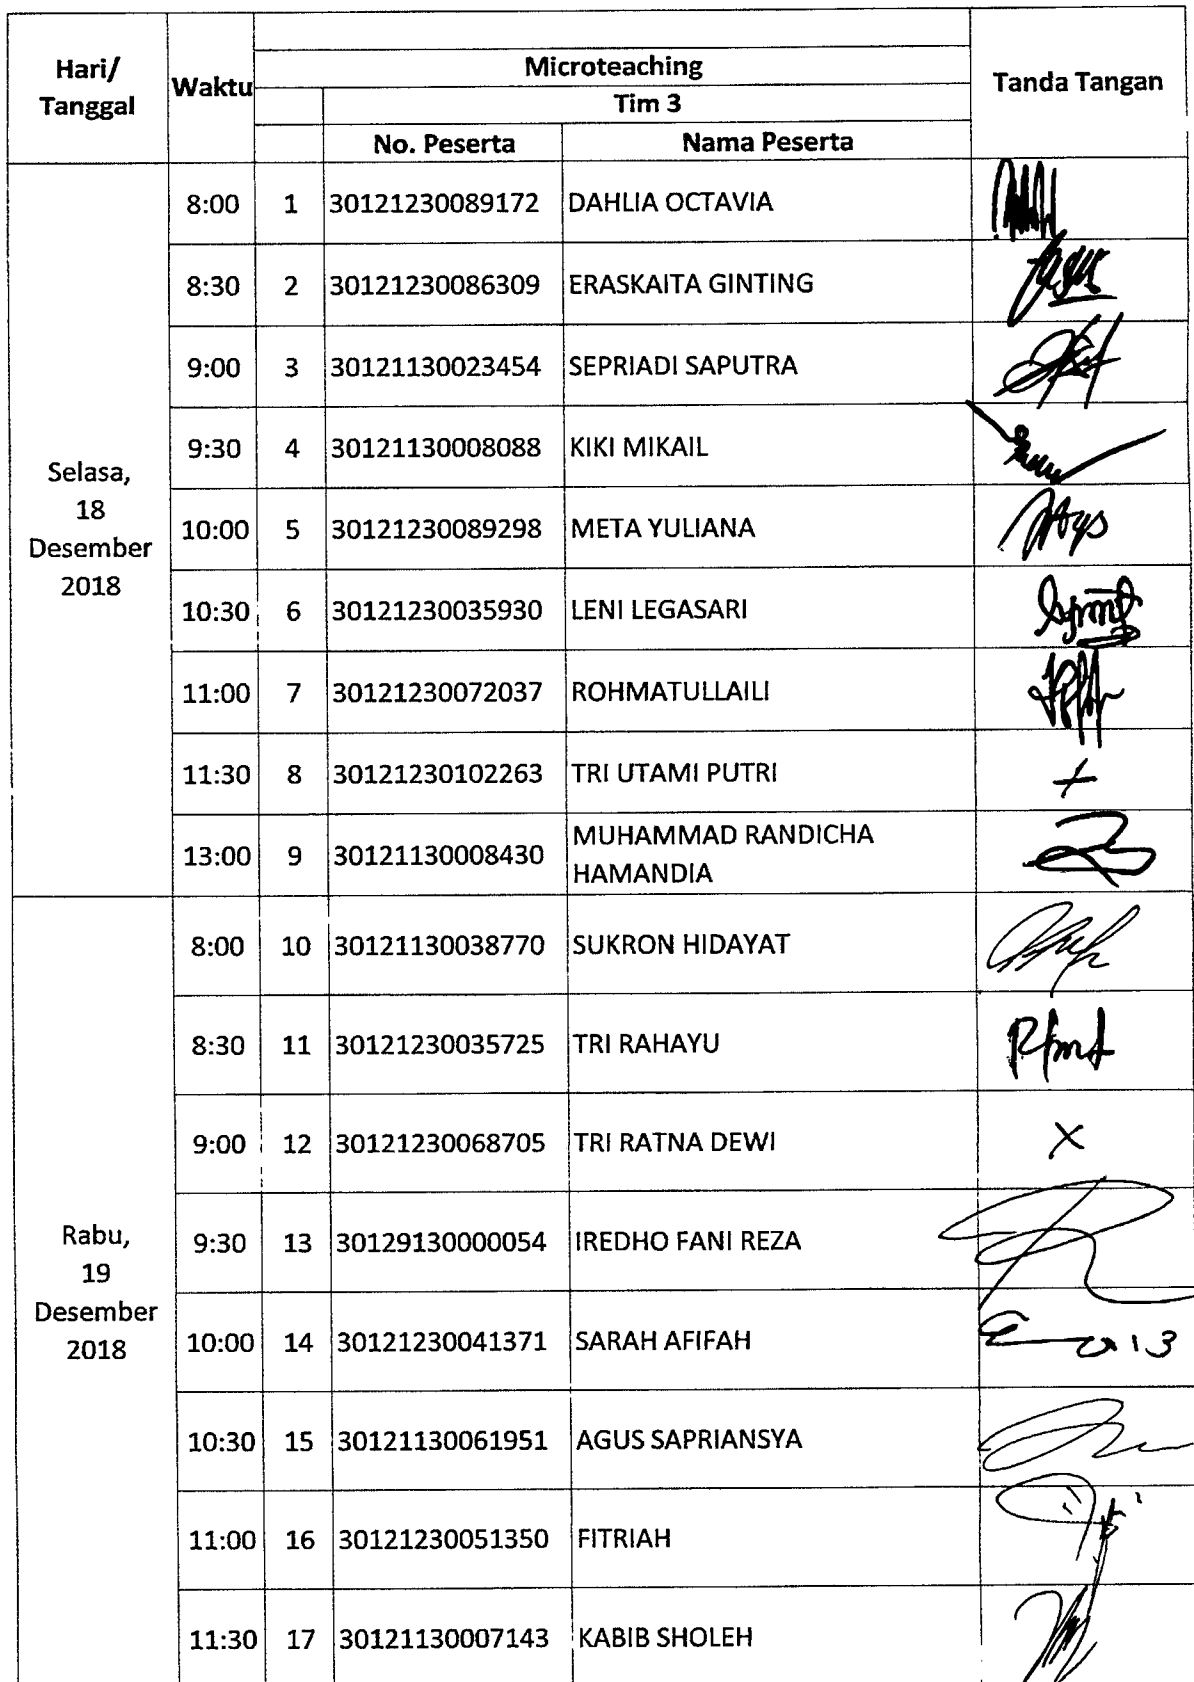 Hari/ Tanggal Waktu Microteaching Tanda Tangan
Tim 3
No. Peserta Nama Peserta
Selasa, 18 Desember 2018
8:00 1 30121230089172 DAHLIA OCTAVIA
8:30 2 30121230086309 ERASKAITA GINTING
9:00 3 30121130023454 SEPRIADI SAPUTRA
9:30 4 30121130008088 KIKI MIKAIL
10:00 5 30121230089298 META YULIANA
10:30 6 30121230035930 LENI LEGASARI
11:00 7 30121230072037 ROHMATULLAILI
11:30 8 30121230102263 TRI UTAMI PUTRI
13:00 9 30121130008430 MUHAMMAD RANDICHA HAMANDIA
Rabu, 19 Desember 2018
8:00 10 30121130038770 SUKRON HIDAYAT
8:30 11 30121230035725 TRI RAHAYU
9:00 12 30121230068705 TRI RATNA DEWI
9:30 13 30129130000054 IREDHO FANI REZA
10:00 14 30121230041371 SARAH AFIFAH
10:30 15 30121130061951 AGUS SAPRIANSYA
11:00 16 30121230051350 FITRIAH
11:30 17 30121130007143 KABIB SHOLEH